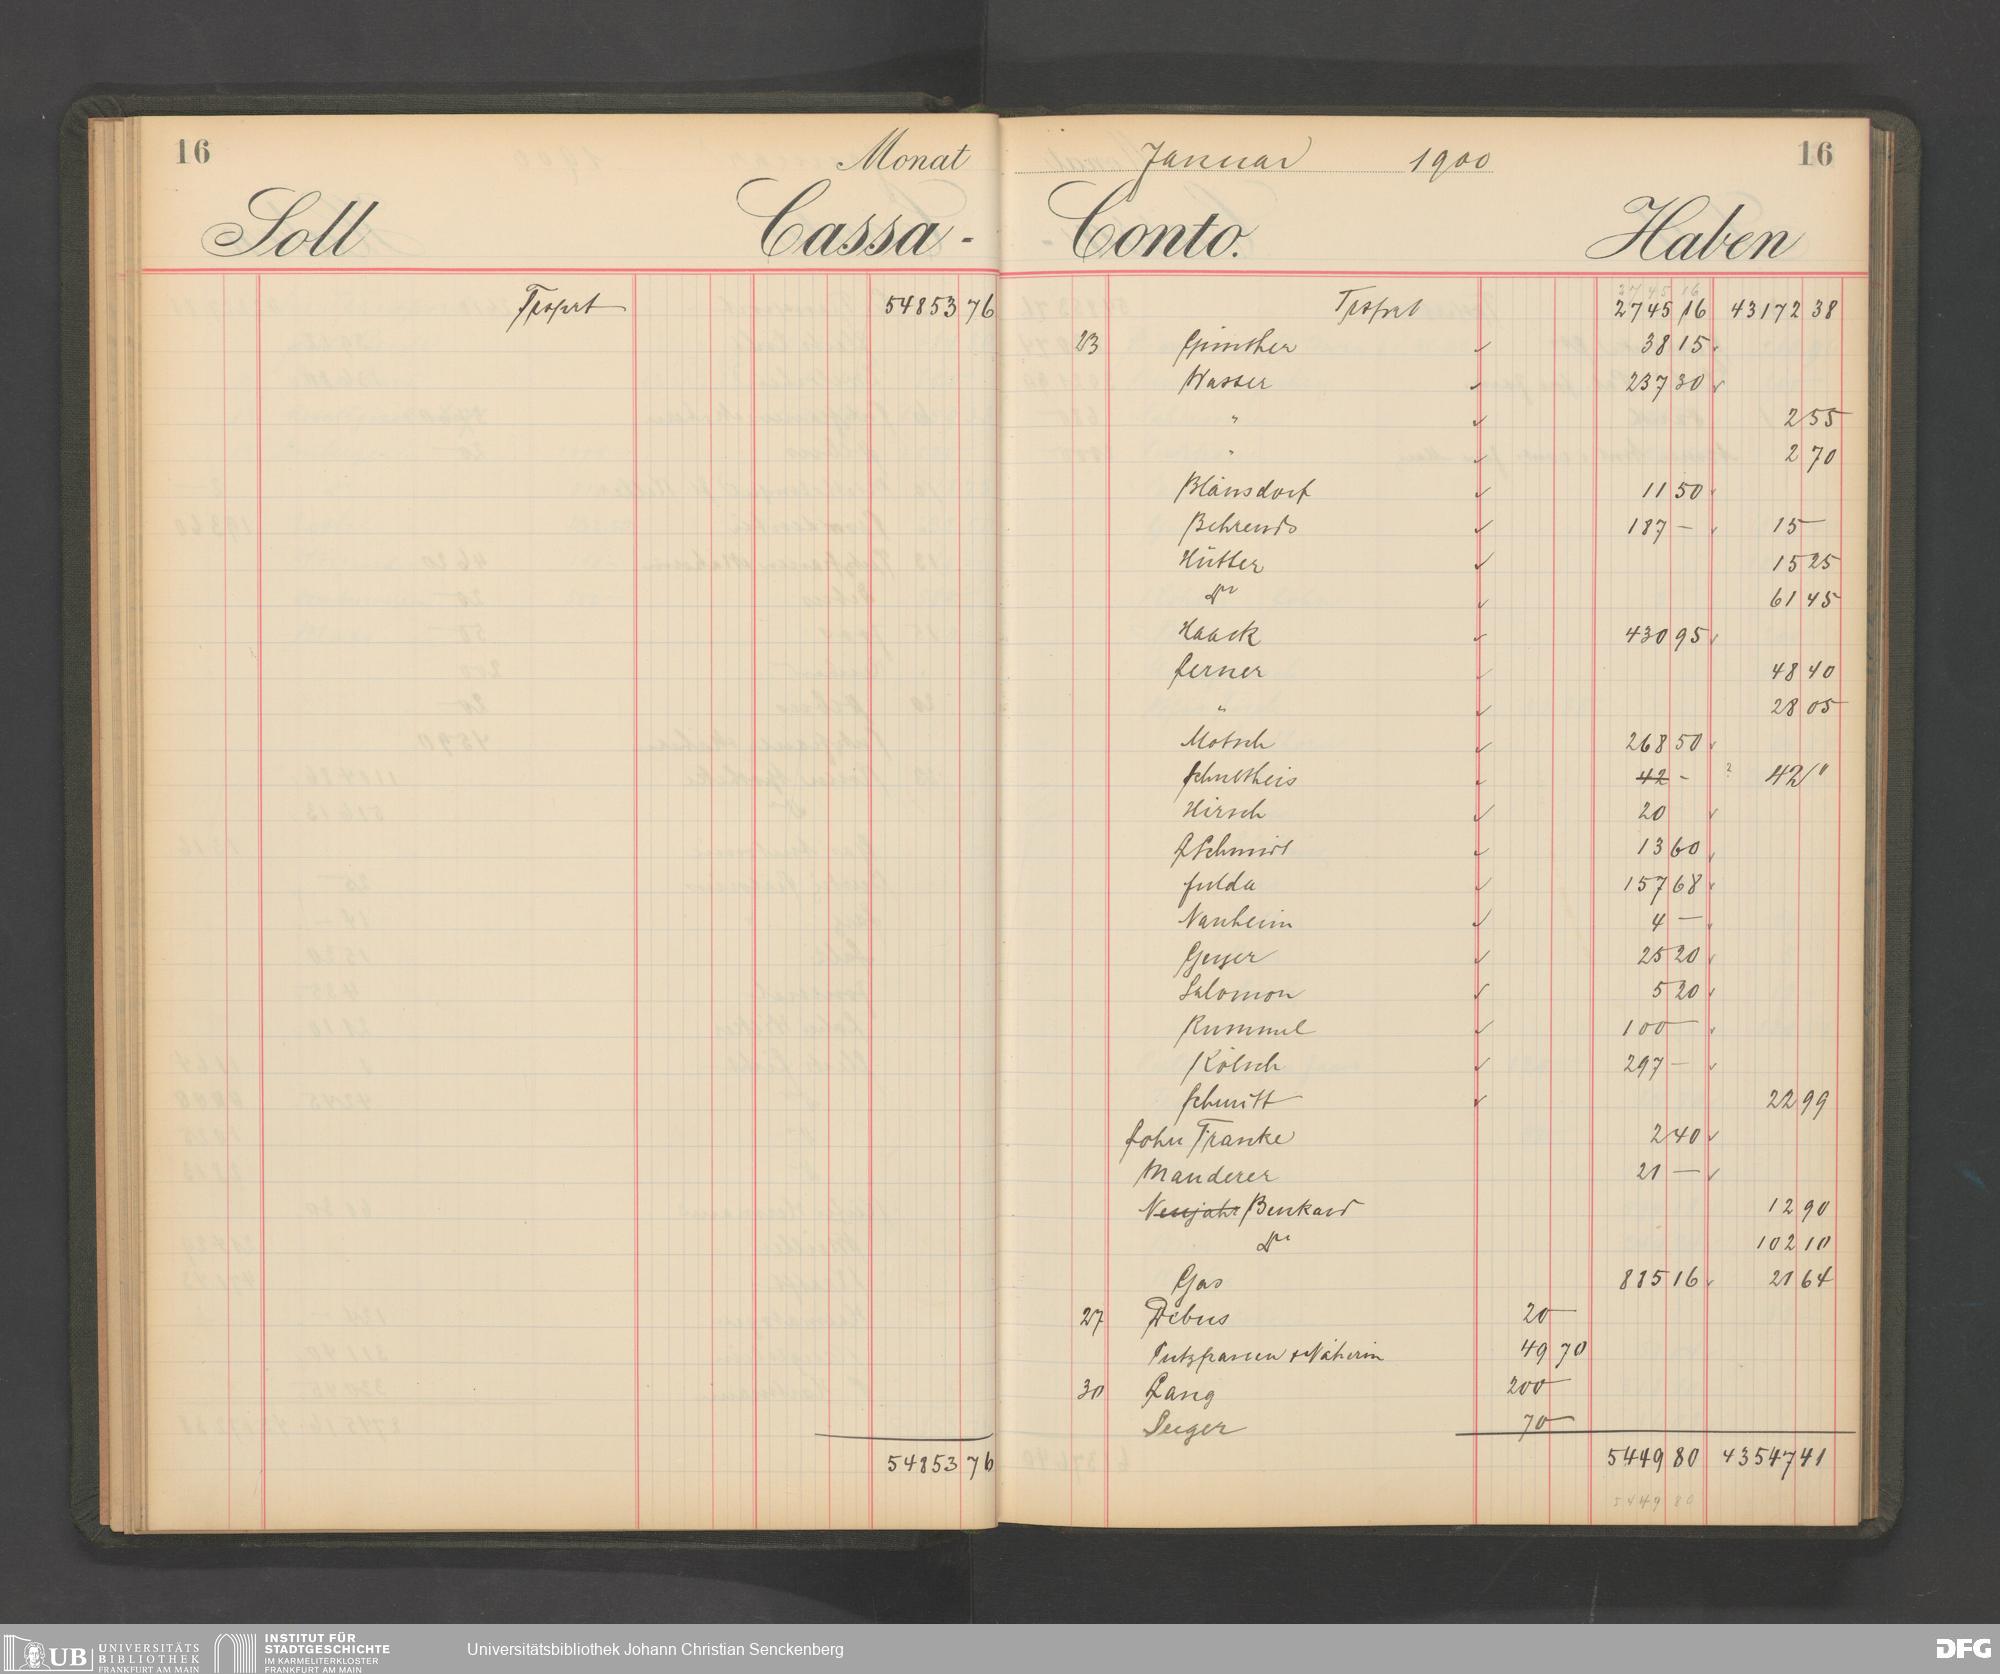 16
Monat
Soll Cassa-
Trsprt 54853 76
54853 76
Januar 1900 16
Conto. Haben
2745 16
Trsprt 2745 16 43172 38
23 Günther 38 15
Wasser 237 30
" 2 55
" 2 70
Blänsdorf 11 50
Behrends 187 — 15 —
Hütter 15 25
Do 61 45
Haack 430 95
Lerner 48 40
" 28 05
Motsch 268 50
Schultheis 42 - ? 42 "
Hirsch 20
LSchmidt 13 60
Fulda 157 68
Nauheim 4 —
Geyer 25 20
Salomon 5 20
Rummel 100 —
Kölsch 297 —
Schmitt 22 99
John Francke 2 40
Manderer 21 —
Neujahr Benkard 12 90
Do 102 10
Gas 885 16 21 64
27 Debus 20 —
Putzfrauen + Näherin 49 70
30 Lang 200 —
Seeger 70 —
5449 80 43547 41
5449 80
UB UNIVERSITÄTS
BIBLIOTHEK
FRANKFURT AM MAIN
INSTITUT FÜR
STADTGESCHICHTE
IM KARMELITERKLOSTER
FRANKFURT AM MAIN
Universitätsbibliothek Johann Christian Senckenberg
DFG